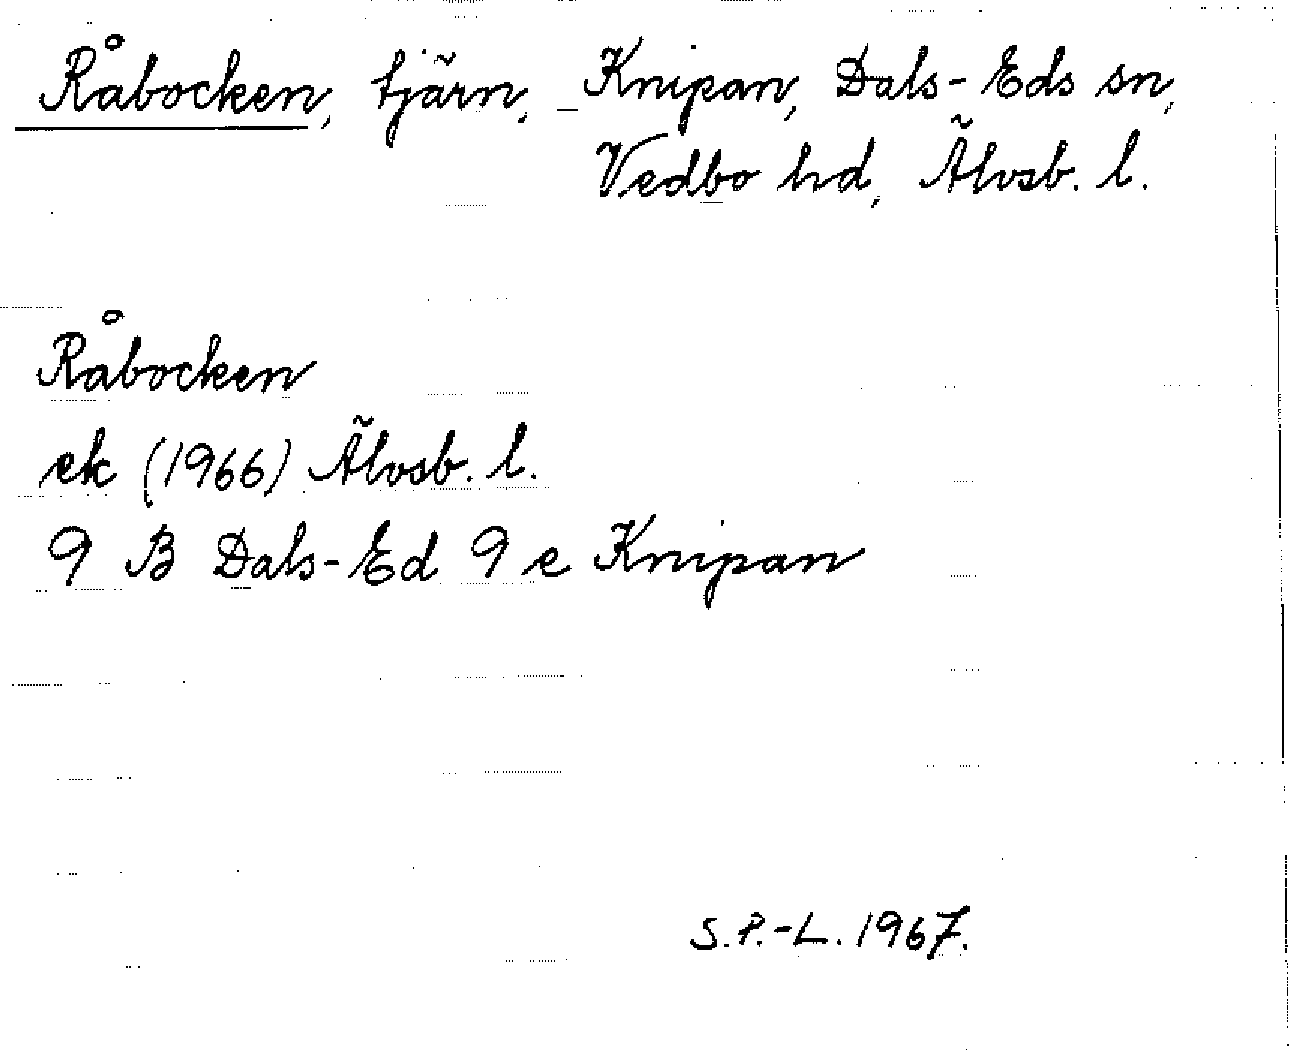 Råbocken, tjärn, Knipan, Dals-Eds sn,
Vedbo hd, Älvsb. l.
Råbocken
ek (1966) Älvsb. l.
9 B Dals-Ed 9 e Knipan
S.P.-L. 1967.